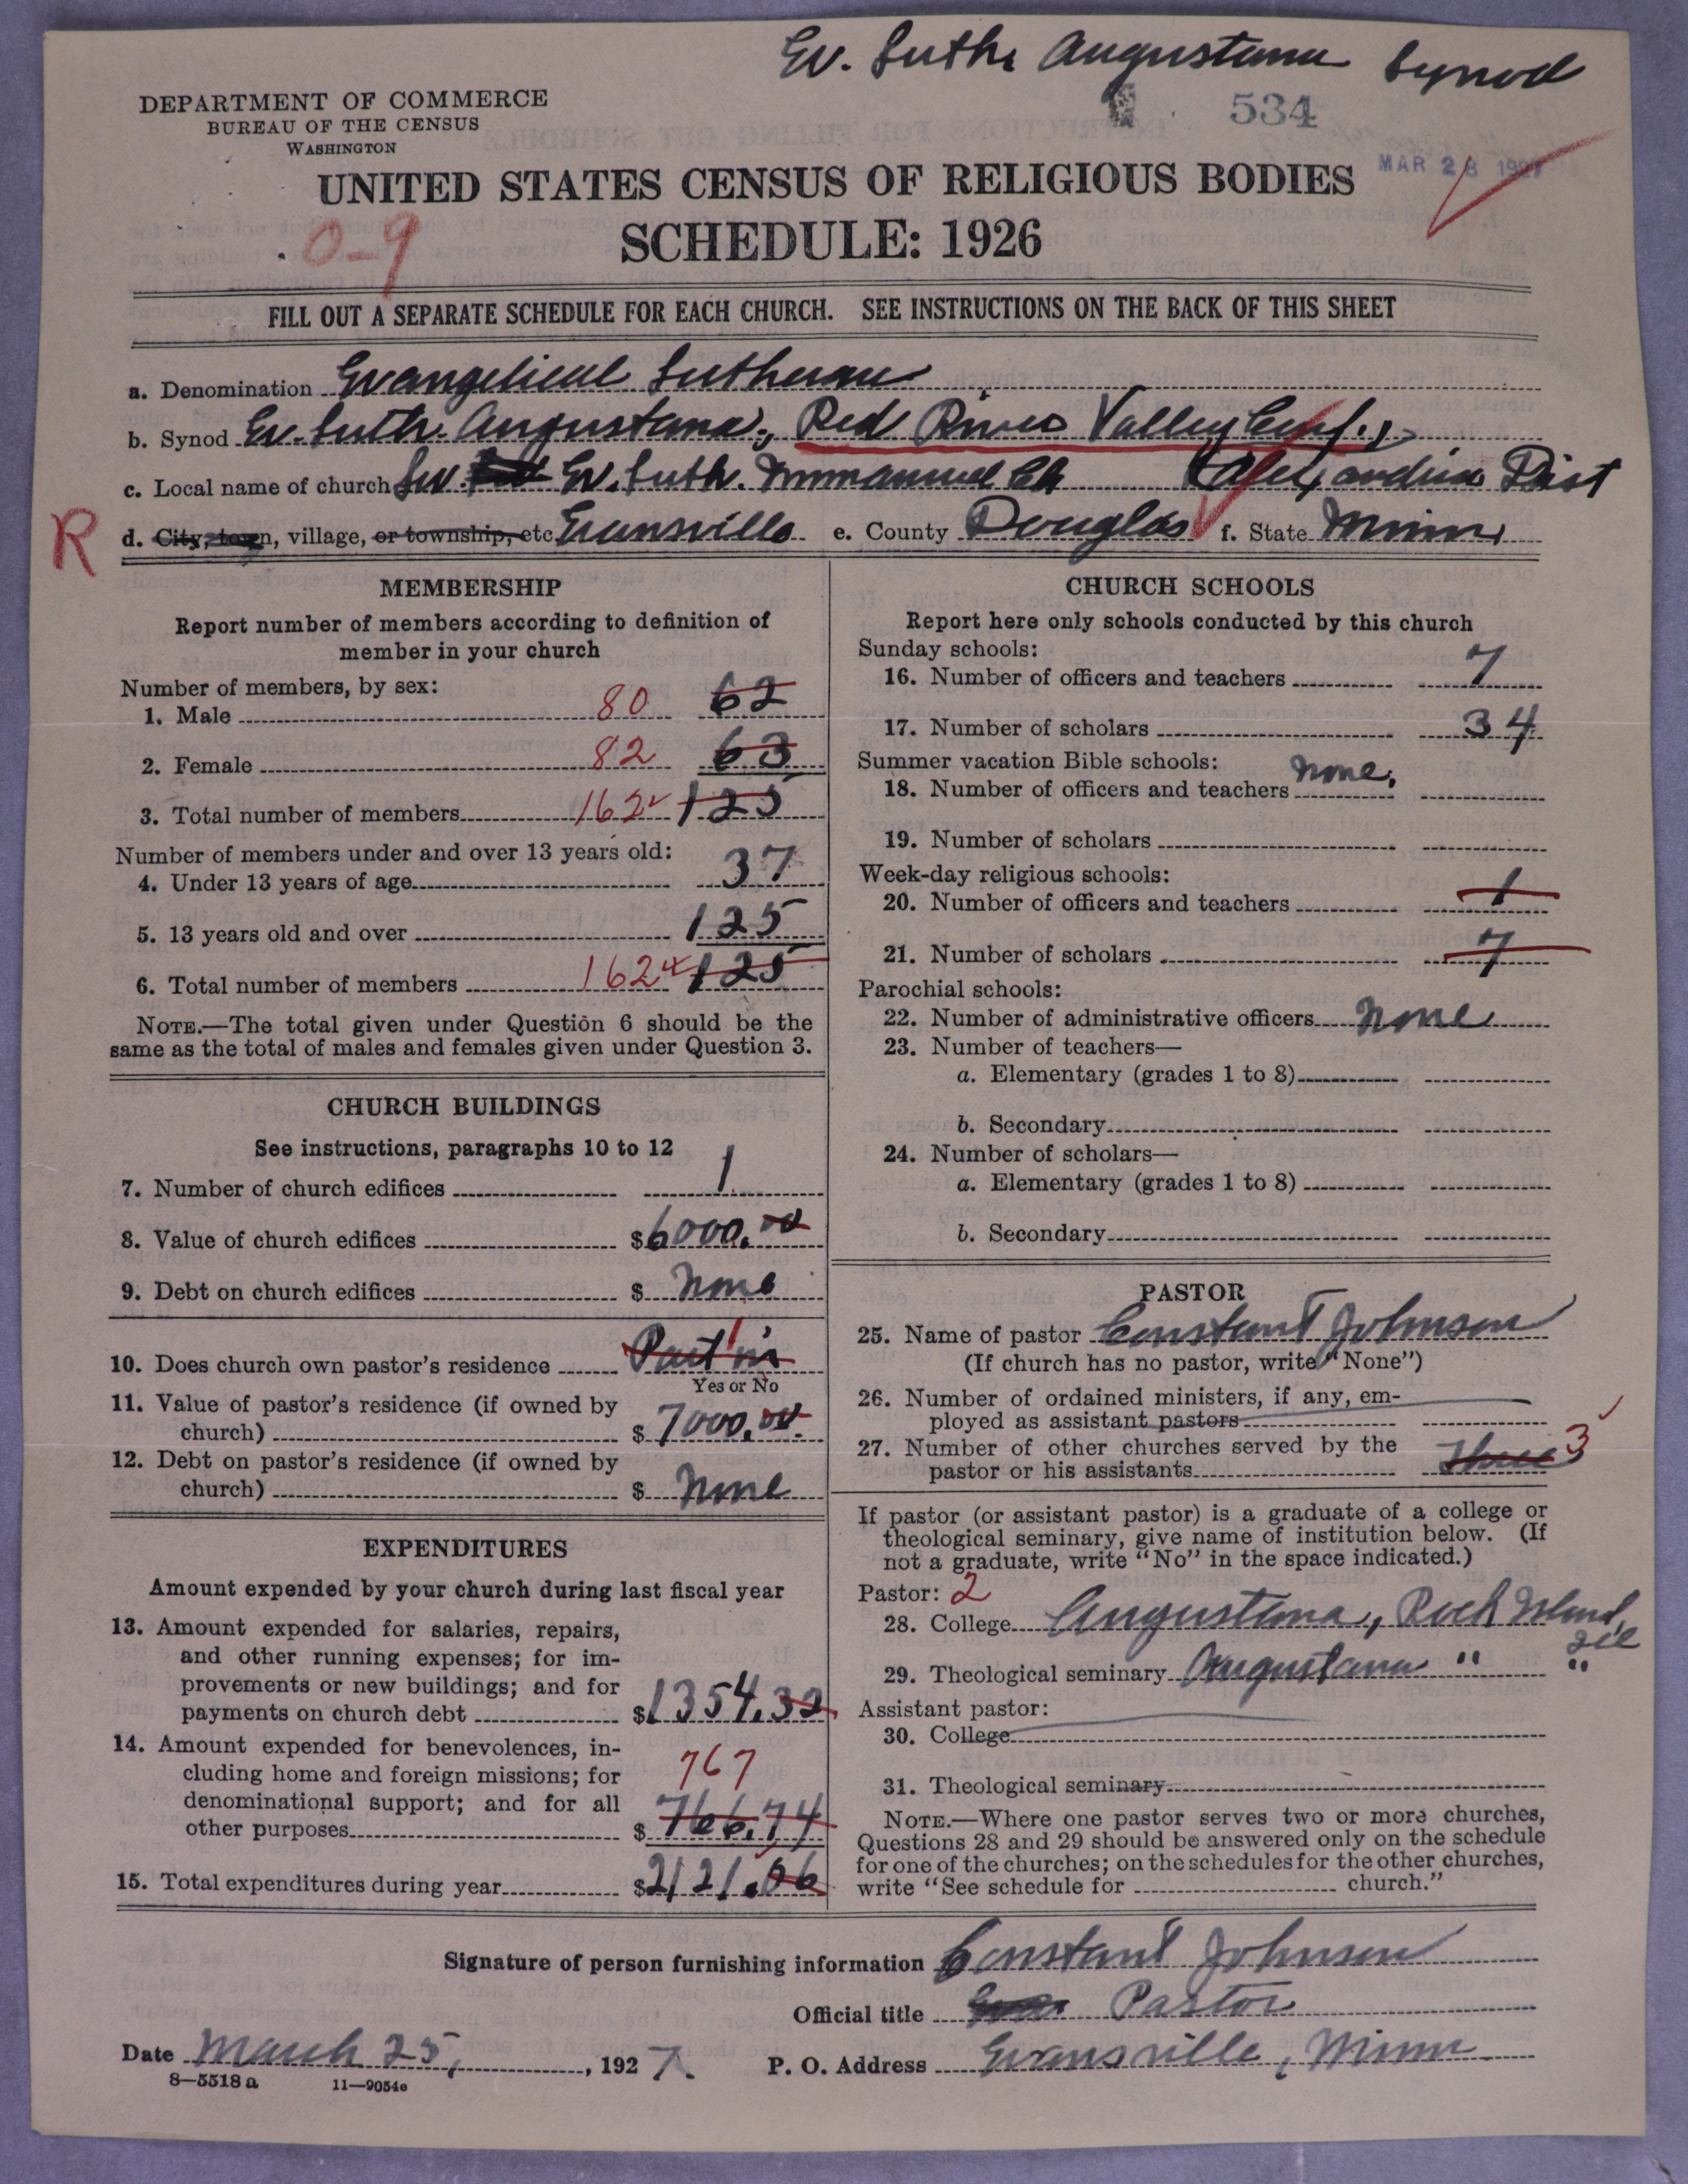 Ev. Luth. Augustana Synod
534
DEPARTMENT OF COMMERCE
BUREAU OF THE CENSUS
WASHINGTON
MAR 28 1927
UNITED STATES CENSUS OF RELIGIOUS BODIES
SCHEDULE: 1926
0-9
FILL OUT A SEPARATE SCHEDULE FOR EACH CHURCH. SEE INSTRUCTIONS ON THE BACK OF THIS SHEET
a. Denomination Evangelical Lutheran
b. Synod Ev. Luth. Augustana, Red River Valley Conf.,
c. Local name of church Sw. Ev. Luth. Immanuel Ch Alexandria Dist
R
d. City, town, village, or township, etc Evansville e. County Douglas f. State Minn,
MEMBERSHIP
Report number of members according to definition of
member in your church
Number of members, by sex:
1. Male 80 62
2. Female 82 63
3. Total number of members 162 125
Number of members under and over 13 years old:
4. Under 13 years of age 37
5. 13 years old and over 125
6. Total number of members 162 125
NOTE.—The total given under Question 6 should be the
same as the total of males and females given under Question 3.
CHURCH BUILDINGS
See instructions, paragraphs 10 to 12
7. Number of church edifices 1
8. Value of church edifices $6000.00
9. Debt on church edifices $ None
10. Does church own pastor's residence Part in 1
Yes or No
11. Value of pastor's residence (if owned by
church) $ 7000.00
12. Debt on pastor's residence (if owned by
church) $ None
EXPENDITURES
Amount expended by your church during last fiscal year
13. Amount expended for salaries, repairs,
and other running expenses; for im-
provements or new buildings; and for
payments on church debt $1354.32
14. Amount expended for benevolences, in-
cluding home and foreign missions; for 767
denominational support; and for all
other purposes $ 766.74
15. Total expenditures during year $2121.06
CHURCH SCHOOLS
Report here only schools conducted by this church
Sunday schools:
16. Number of officers and teachers 7
17. Number of scholars 34
Summer vacation Bible schools:
18. Number of officers and teachers None.
19. Number of scholars
Week-day religious schools:
20. Number of officers and teachers 1
21. Number of scholars 7
Parochial schools:
22. Number of administrative officers None
23. Number of teachers—
a. Elementary (grades 1 to 8)
b. Secondary
24. Number of scholars—
a. Elementary (grades 1 to 8)
b. Secondary
PASTOR
25. Name of pastor Constant Johnson
(If church has no pastor, write "None")
26. Number of ordained ministers, if any, em-
ployed as assistant pastors
27. Number of other churches served by the
pastor or his assistants Three 3
If pastor (or assistant pastor) is a graduate of a college or
theological seminary, give name of institution below. (If
not a graduate, write "No" in the space indicated.)
Pastor: 2
28. College Augustana, Rock Island, Ill
29. Theological seminary Augustana " "
Assistant pastor:
30. College
31. Theological seminary
NOTE.—Where one pastor serves two or more churches,
Questions 28 and 29 should be answered only on the schedule
for one of the churches; on the schedules for the other churches,
write "See schedule for church."
Signature of person furnishing information Constant Johnson
Official title Pastor
Date March 25, 1927. P. O. Address Evansville, Minn
8—5518 a 11—9054e